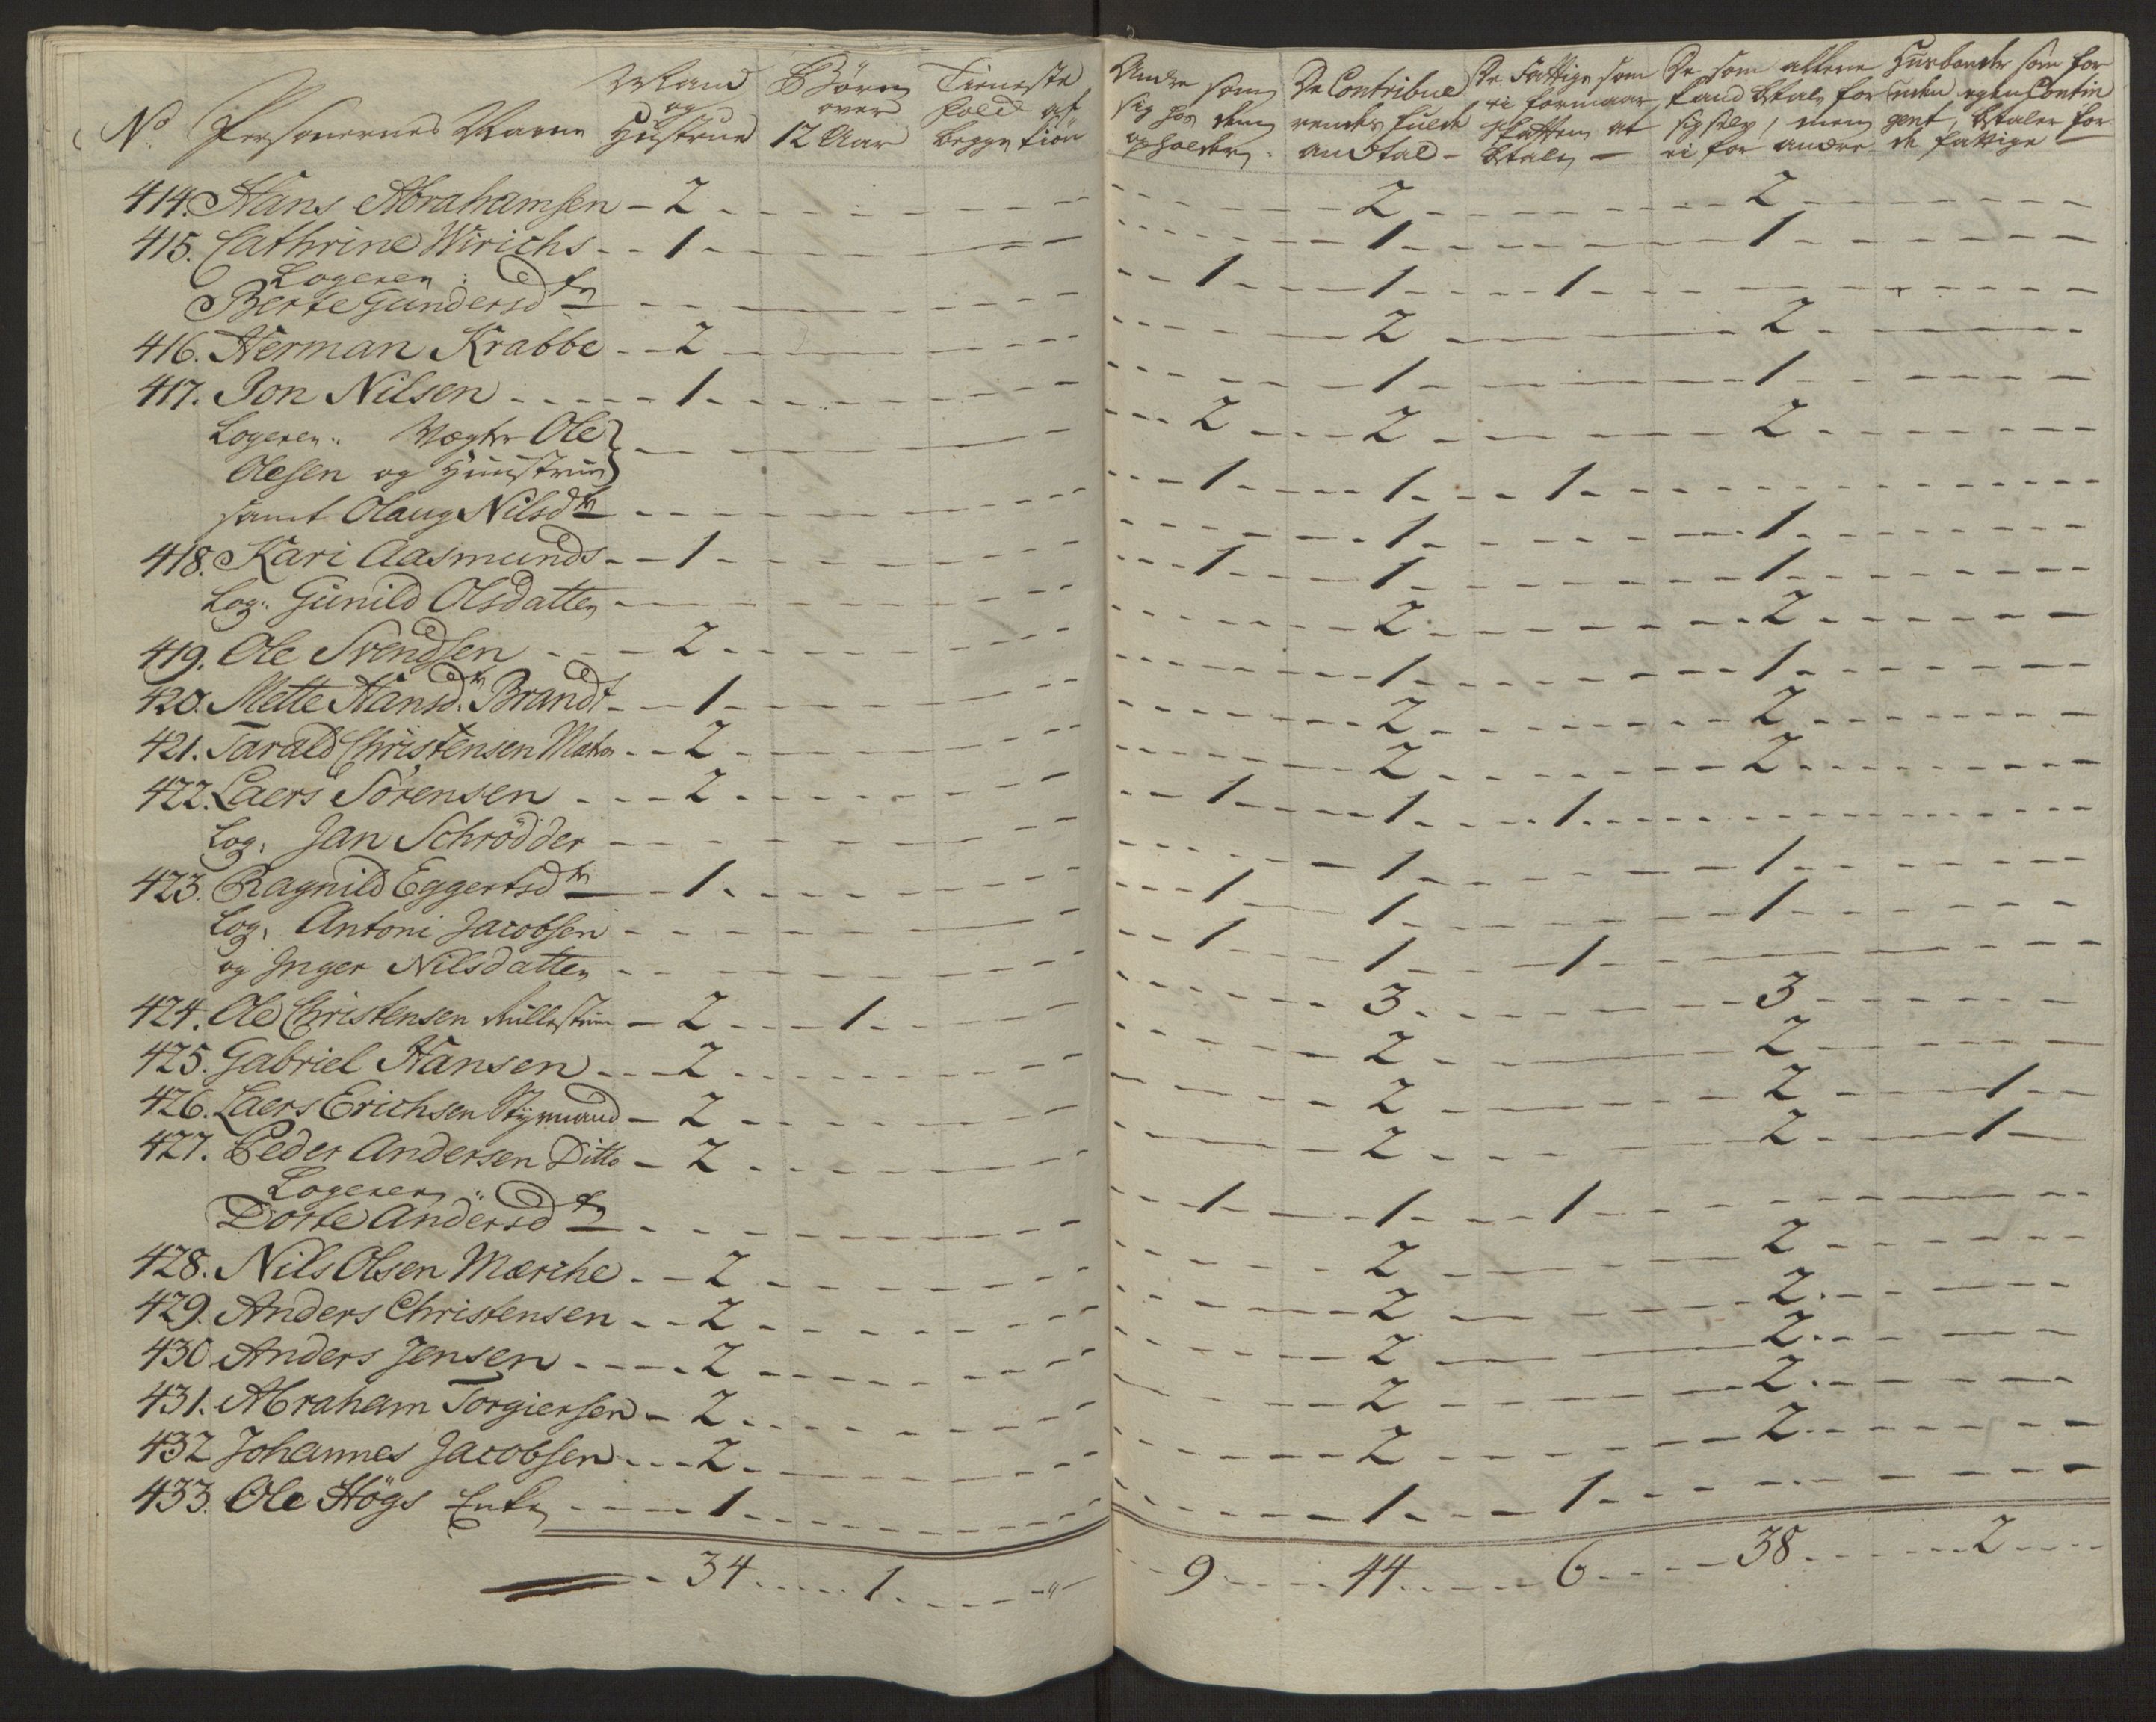 No. Personernes Navne | Mand og Hustrue | Børn over 12 Aar | Tieneste folk af begge kiön | Andre som sig hos dem opholder. | De Contribue rendes fulde antal - | De Fattige som ei formaar at betale - | De som allene kand betale for sig selv, men ei for andre | Husbonder som for uden egen Contin gent, betaler for de fattige
414. Hans Abrahamsen - 2 - - 2 - - 2 -
415. Cathrine Wirichs - 1 - - 1 - - 1 -
Logerer:
Berte Gundersd.tr - - 1 - 1 - 1 - -
416. Herman Krabbe - 2 - - 2 - - 2 -
417. Jon Nilsen - 1 - - 1 - - 1 -
Logerer: Vægter Ole
Olesen og Huustrue } - - 2 - 2 - - 2 -
samt Olaug Nilsd.tr - - 1 - 1 - 1 - -
418. Kari Aasmunds - 1 - - 1 - - 1 -
Log: Gunild Olsdatter - - 1 - 1 - - 1 -
419. Ole Svendsen - 2 - - 2 - - 2 -
420. Mette Hansd.tr Brandt - 1 - - 1 - - 1 -
421. Tarald Christensen - 2 - - 2 - - 2 -
422. Laers Sörensen - 2 - - 2 - - 2 -
Log: Jan Schrödder - - 1 - 1 - 1 - -
423. Ragnild Eggertsd.tr - 1 - - 1 - - 1 -
Log: Antoni Jacobsen - - 1 - 1 - - 1 -
og Inger Nilsdatter - - 1 - 1 - 1 - -
424. Ole Christensen - 2 - 1 - 3 - - 3 -
425. Gabriel Hansen - 2 - - 2 - - 2 -
426. Laers Erichsen Styrmand - 2 - - 2 - - 2 - 1 -
427. Peder Andersen Ditto - 2 - - 2 - - 2 - 1 -
Logerer:
Dorte Andersd.tr - - 1 - 1 - 1 - -
428. Nils Olsen Mærche - 2 - - 2 - - 2 -
429. Anders Christensen - 2 - - 2 - - 2 -
430 Anders Jensen - 2 - - 2 - - 2 -
431. Abraham Torgiersen - 2 - - 2 - - 2 -
432 Johannes Jacobsen - 2 - - 2 - - 2 -
433. Ole Högs Enke - 1 - - 1 - 1 - -
- 34 - 1 - " - 9 - 44 - 6 - 38 - 2 -